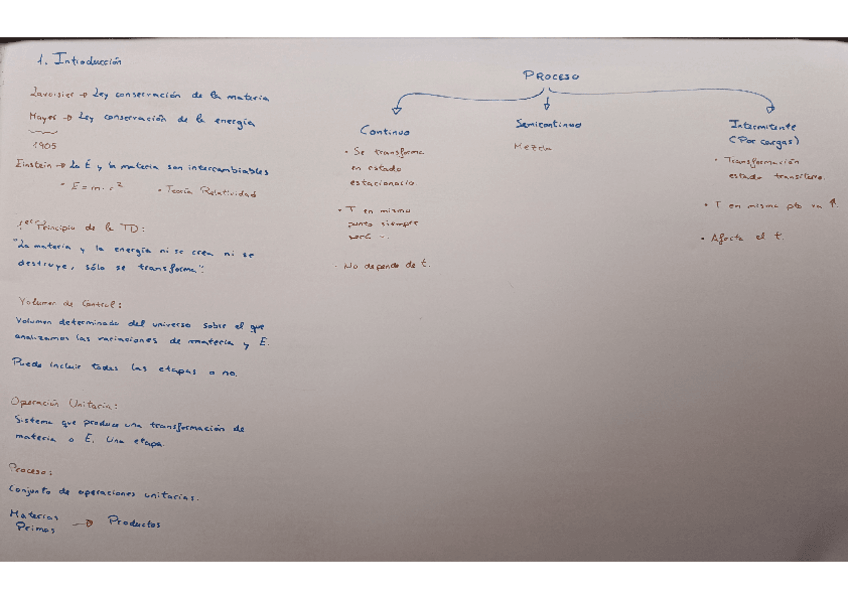 1. Introducción
Lavoisier → Ley conservación de la materia
Mayer → Ley conservación de la energía
1905
Einstein → La E y la materia son intercambiables
• E = m·c² • Teoría Relatividad
1er Principio de la TD:
"La materia y la energía ni se crea ni se
destruye, sólo se transforma".
Volumen de Control:
Volumen determinado del universo sobre el que
analizamos las variaciones de materia y E.
Puede incluir todas las etapas o no.
Operación Unitaria:
Sistema que produce una transformación de
materia o E. Una etapa.
Proceso:
Conjunto de operaciones unitarias.
Materias
Primas → Productos
PROCESO
Continuo
• Se transforma
en estado
estacionario
• T en mismo
punto siempre
será
• No depende de t.
Semicontinuo
Mezcla
Intermitente
(Por cargas)
• Transformación
estado transitorio.
• T en mismo pto va ↑.
• Afecta el t.